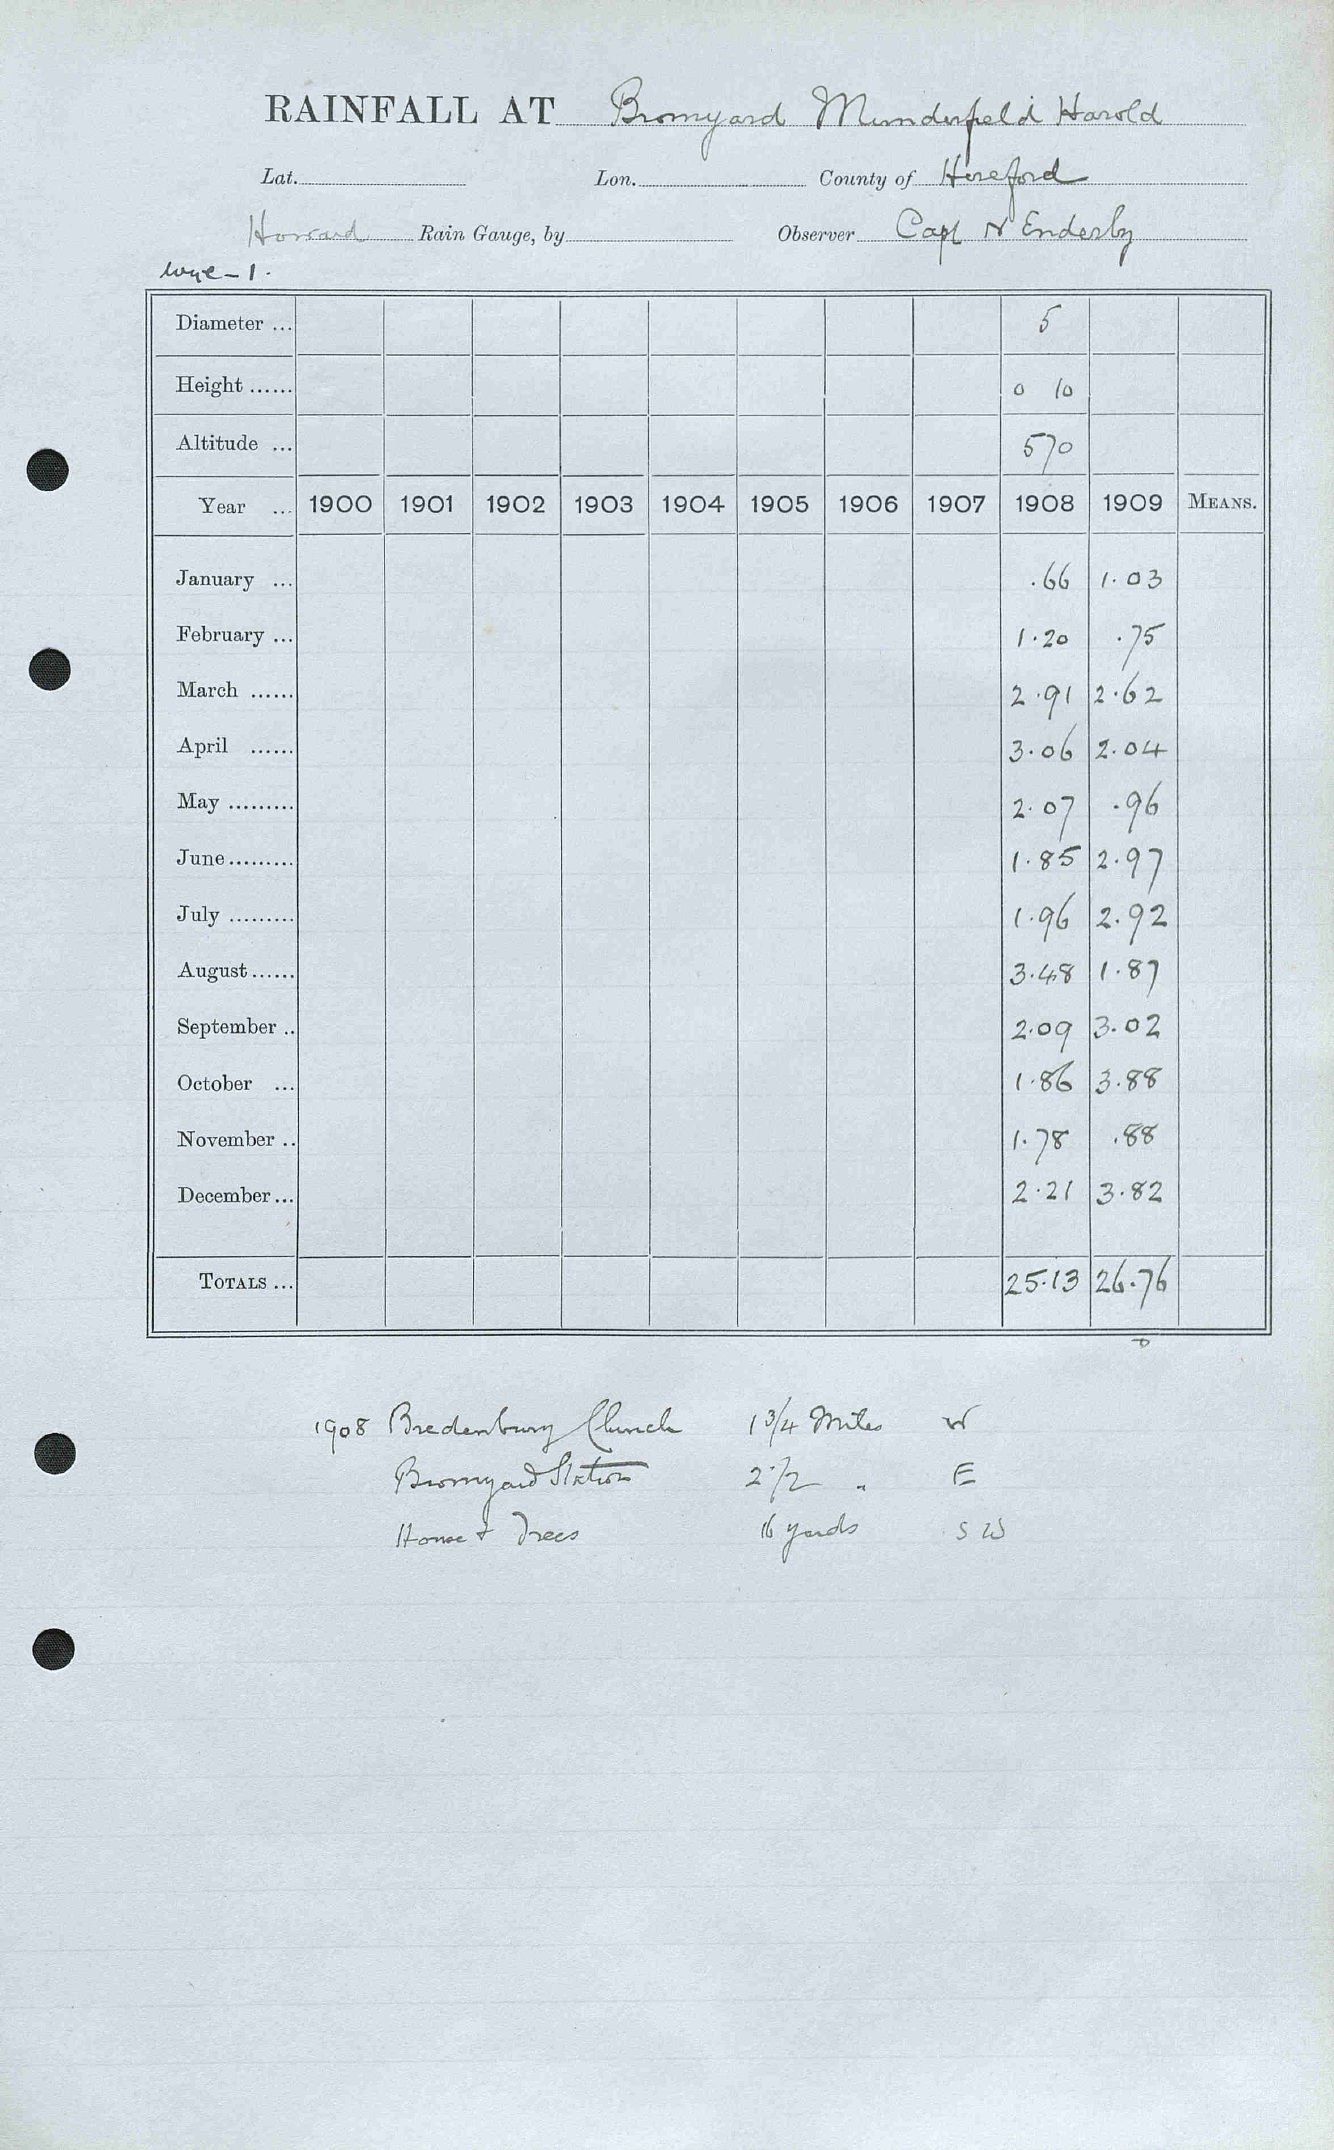 RAINFALL AT Bromyard Munderfield Harold
Lat. Lon. County of Hereford
Howard Rain Gauge, by Observer Capt N Enderby
Wye - 1.
Diameter ... 5
Height ...... 0 10
Altitude ... 570
Year ... 1900 1901 1902 1903 1904 1905 1906 1907 1908 1909 MEANS.
January ... .66 1.03
February ... 1.20 .75
March ...... 2.91 2.62
April ...... 3.06 2.04
May ......... 2.07 .96
June ......... 1.85 2.97
July ......... 1.96 2.92
August ...... 3.48 1.87
September .. 2.09 3.02
October ... 1.86 3.88
November .. 1.78 .88
December ... 2.21 3.82
TOTALS ... 25.13 26.76
1908 Bredenbury Church 1 3/4 Miles W
Bromyard Station 2 1/2 " E
House & Trees 16 yards S W